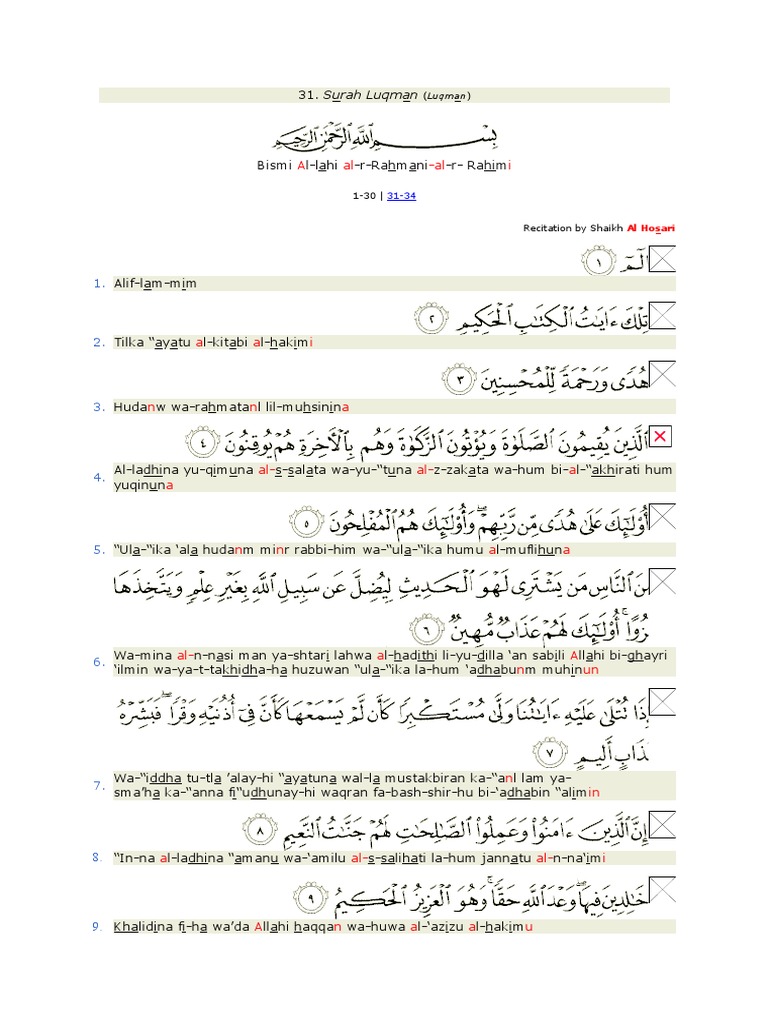 31. Surah Luqman (Luqman)
بِسْمِ ٱللَّهِ ٱلرَّحْمَٰنِ ٱلرَّحِيمِ
Bismi Al-lahi al-r-Rahmani-al-r- Rahimi
1-30 | 31-34
Recitation by Shaikh Al Hosari
الٓمٓ ١
1. Alif-lam-mim
تِلْكَ ءَايَٰتُ ٱلْكِتَٰبِ ٱلْحَكِيمِ ٢
2. Tilka “ayatu al-kitabi al-hakimi
هُدًى وَرَحْمَةً لِّلْمُحْسِنِينَ ٣
3. Hudanw wa-rahmatanl lil-muhsinina
ٱلَّذِينَ يُقِيمُونَ ٱلصَّلَوٰةَ وَيُؤْتُونَ ٱلزَّكَوٰةَ وَهُم بِٱلْأَخِرَةِ هُمْ يُوقِنُونَ ٤
4. Al-ladhina yu-qimuna al-s-salata wa-yu-“tuna al-z-zakata wa-hum bi-al-“akhirati hum
yuqinuna
أُوْلَٰٓئِكَ عَلَىٰ هُدًى مِّن رَّبِّهِمْ ۖ وَأُوْلَٰٓئِكَ هُمُ ٱلْمُفْلِحُونَ ٥
5. “Ula-“ika ‘ala hudanm minr rabbi-him wa-“ula-“ika humu al-muflihuna
نَ ٱلنَّاسِ مَن يَشْتَرِى لَهْوَ ٱلْحَدِيثِ لِيُضِلَّ عَن سَبِيلِ ٱللَّهِ بِغَيْرِ عِلْمٍ وَيَتَّخِذَهَا
زُوًا ۚ أُوْلَٰٓئِكَ لَهُمْ عَذَابٌ مُّهِينٌ ٦
6. Wa-mina al-n-nasi man ya-shtari lahwa al-hadithi li-yu-dilla ‘an sabili Allahi bi-ghayri
‘ilmin wa-ya-t-takhidha-ha huzuwan “ula-“ika la-hum ‘adhabunm muhinun
ذَا تُتْلَىٰ عَلَيْهِ ءَايَٰتُنَا وَلَّىٰ مُسْتَكْبِرًا كَأَن لَّمْ يَسْمَعْهَا كَأَنَّ فِىٓ أُذُنَيْهِ وَقْرًا ۖ فَبَشِّرْهُ
ذَابٍ أَلِيمٍ ٧
7. Wa-“iddha tu-tla ’alay-hi “ayatuna wal-la mustakbiran ka-“anl lam ya-
sma’ha ka-“anna fi“udhunay-hi waqran fa-bash-shir-hu bi-‘adhabin “alimin
إِنَّ ٱلَّذِينَ ءَامَنُوا۟ وَعَمِلُوا۟ ٱلصَّٰلِحَٰتِ لَهُمْ جَنَّٰتُ ٱلنَّعِيمِ ٨
8. “In-na al-ladhina “amanu wa-‘amilu al-s-salihati la-hum jannatu al-n-na‘imi
خَٰلِدِينَ فِيهَا ۖ وَعْدَ ٱللَّهِ حَقًّا ۚ وَهُوَ ٱلْعَزِيزُ ٱلْحَكِيمُ ٩
9. Khalidina fi-ha wa’da Allahi haqqan wa-huwa al-‘azizu al-hakimu